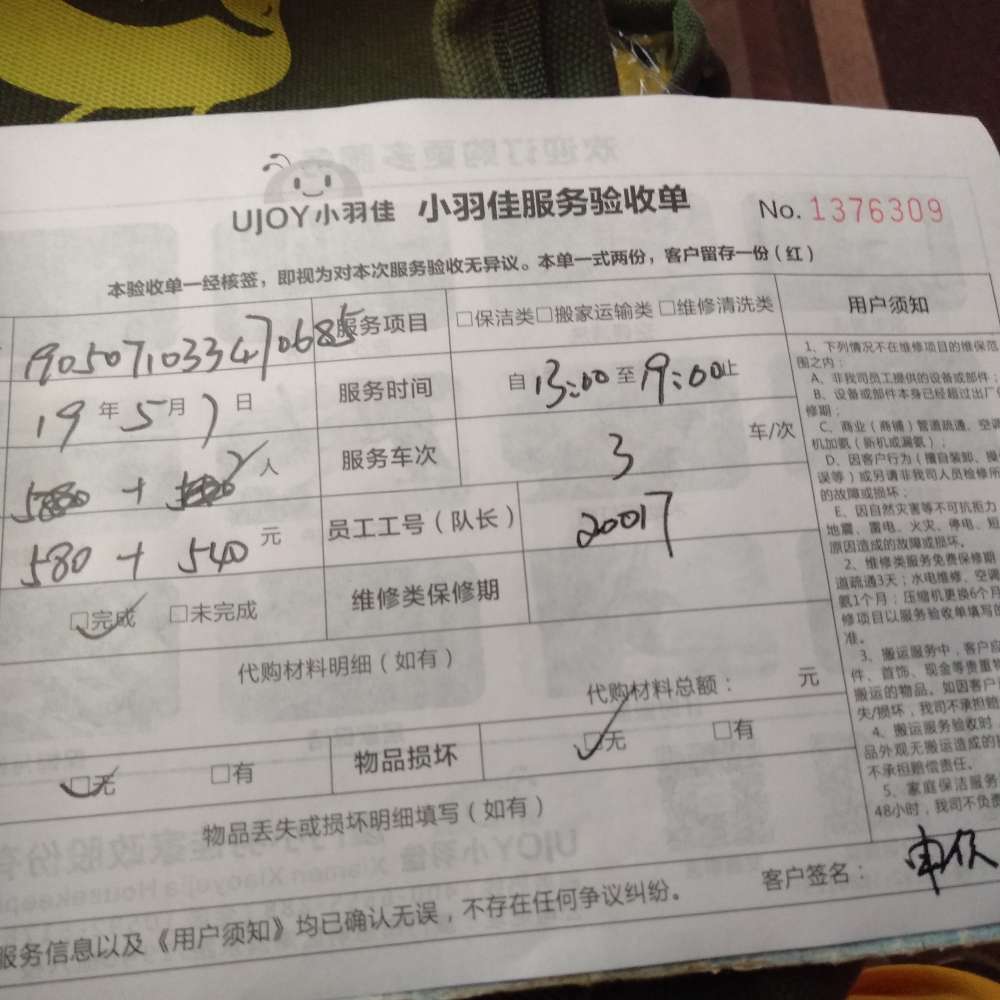 UJOY小羽佳 小羽佳服务验收单 No. 1376309
本验收单一经核签，即视为对本次服务验收无异议。本单一式两份，客户留存一份（红）
1905071033470685 服务项目 □保洁类□搬家运输类 □维修清洗类 用户须知
19 年 5 月 7 日 服务时间 自 13:00 至 19:00 止
人 服务车次 3 车/次
580 + 540 元 员工工号（队长） 20017
□完成 □未完成 维修类保修期
代购材料明细（如有）
代购材料总额： 元
□无 □有 物品损坏 □无 □有
物品丢失或损坏明细填写（如有）
服务信息以及《用户须知》均已确认无误，不存在任何争议纠纷。 客户签名：
1、下列情况不在维修项目的维保范
围之内：
A、非我司员工提供的设备或部件；
B、设备或部件本身已经超过出厂
修期；
C、商业（商铺）管道疏通、空调
机加氨（新机或漏氨）；
D、因客户行为（擅自装卸、操
误等）或另请非我司人员检修所
的故障或损坏；
E、因自然灾害等不可抗拒力
地震、雷电、火灾、停电、短
原因造成的故障或损坏。
2、维修类服务免费保修期
道疏通3天；水电维修、空调
氨1个月；压缩机更换6个月
修项目以服务验收单填写的
准。
3、搬运服务中，客户应
件、首饰、现金等贵重物
搬运的物品。如因客户
失/损坏，我司不承担赔
4、搬运服务验收时
品外观无搬运造成的
不承担赔偿责任。
5、家庭保洁服务
48小时，我司不负责